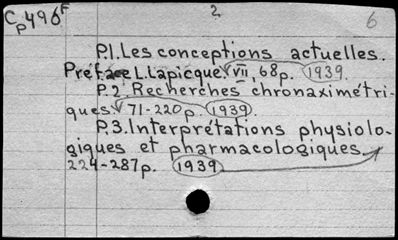 Cp496F 2 6
P.1.Les conceptions actuelles.
Préface L.Lapicque. vii, 68p. 1939.
P.2. Recherches chronaximétri-
ques. 71-220p. 1939.
P.3.Interprétations physiolo-
giques et pharmacologiques.
224-287p. 1939